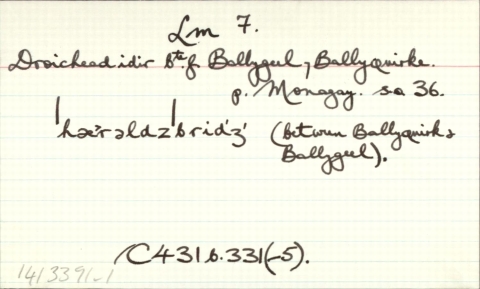 Lm 7.
Droichead idir bte. f Ballygeel, Ballyquirke.
p. Monagay. sa 36.
ˈhærəldzˈbridʹʒʹ (between Ballyquirk &
Ballygeel).
C431 b.331(-5).
1413391-1